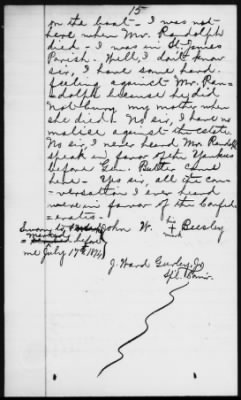 15
on the boat - I was not
here when Mr. Randolph
died - I was in St James
Parish. Well, I don't know
sir, I have some hard
feeling against Mr. Ran=
=dolph because he did
not bury my mother when
she died. No sir, I have no
malice against the estate.
No sir, I never heard Mr. Randolph
speak in favor of the Yankees
before Gen. Butler came
here - Yes sir, all the con=
=versation I ever heard
were in favor of the Confed=
=erates -
Sworn to
before
me July 17th 1874
John W. his + mark Beesley
J. Ward Gurley, Jr
Spl. Comr.